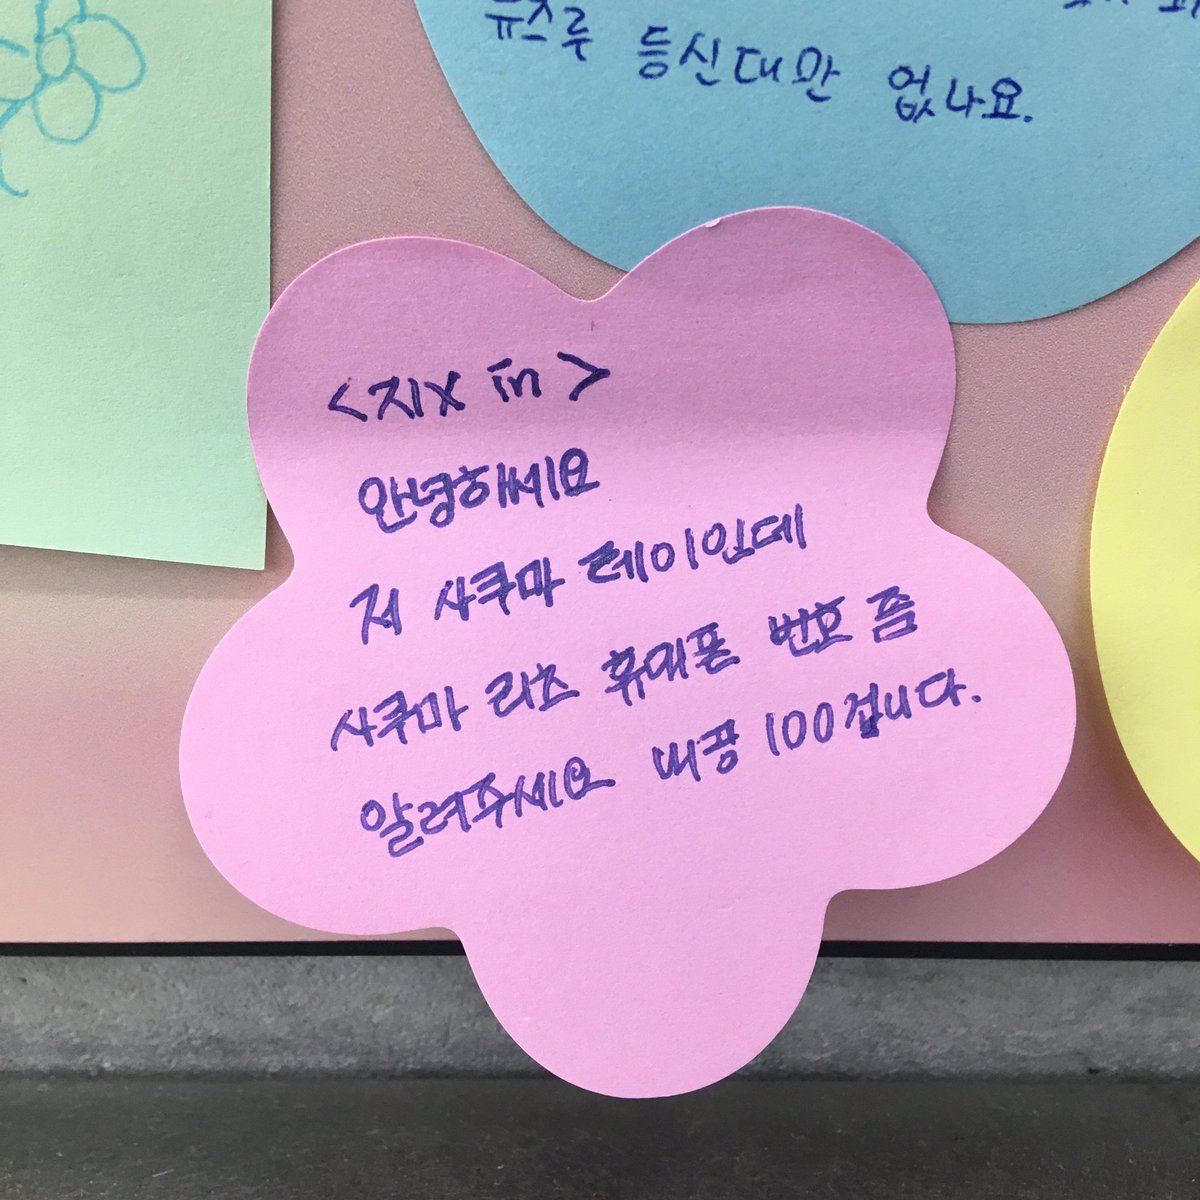 뉴즈루 등신대만 없나요.
<지X in>
안녕하세요
저 사쿠마 레이인데
사쿠마 리츠 휴대폰 번호 좀
알려주세요 내공 100겁니다.